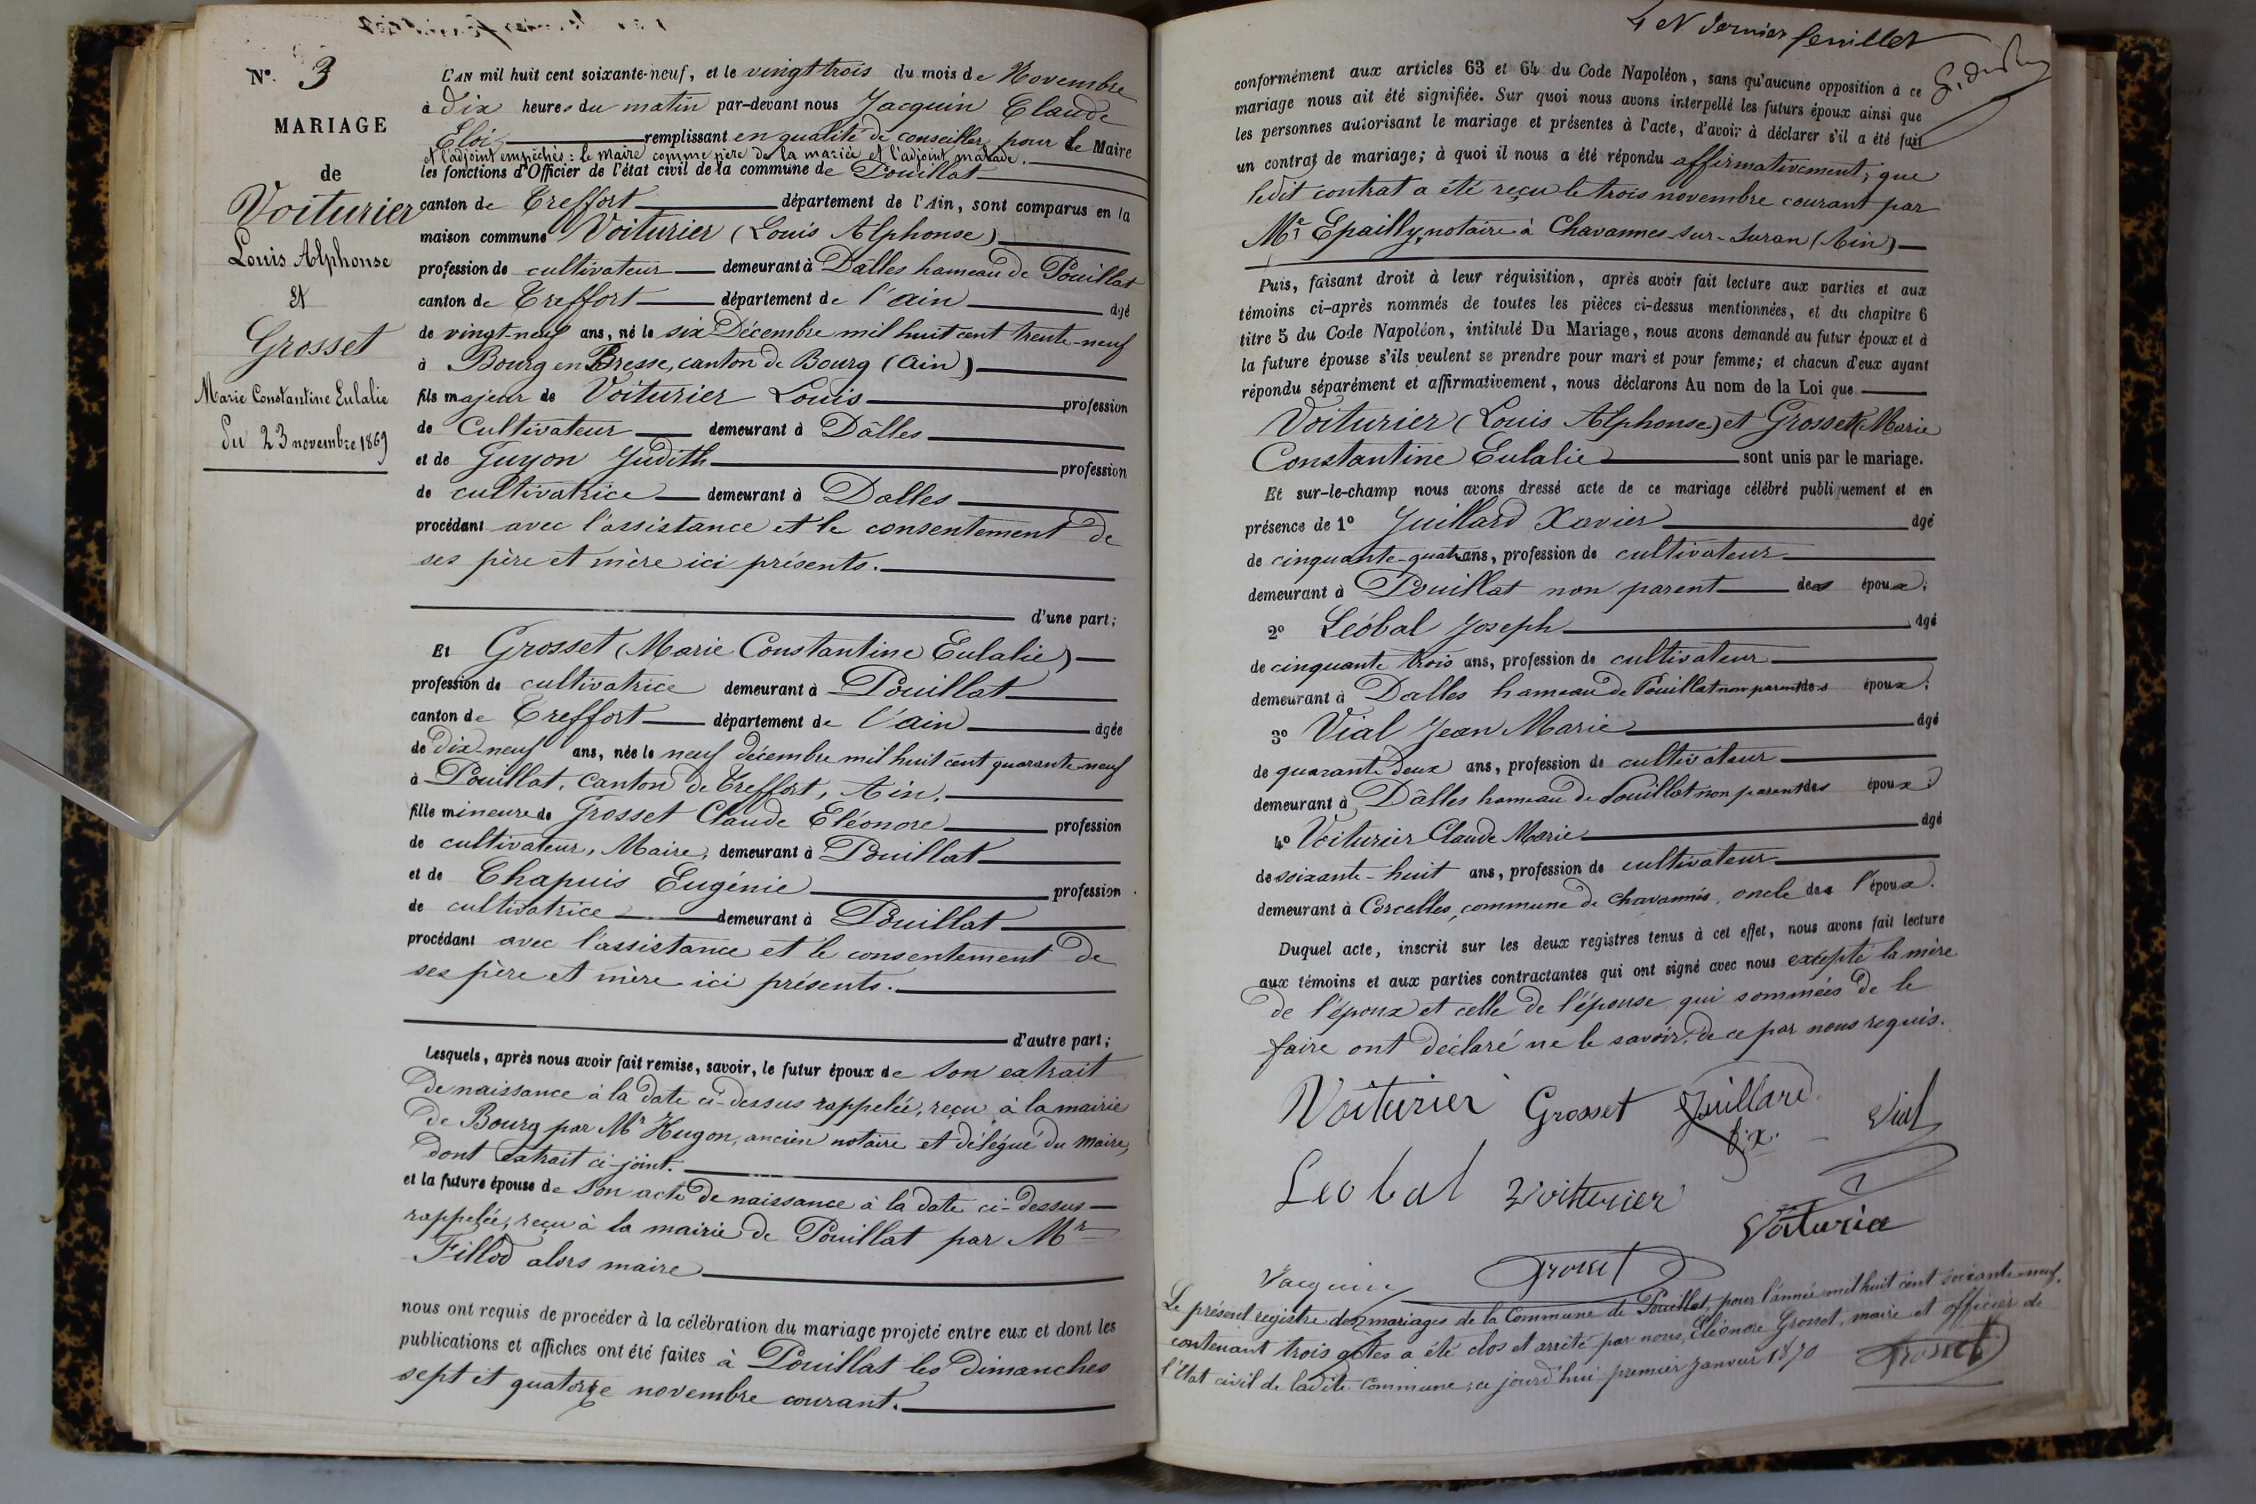 N°. 3
MARIAGE
de
Voiturier
Louis Alphonse
Et
Grosset
Marie Constantine Eulalie
Du 23 novembre 1869
L'AN mil huit cent soixante-neuf, et le vingt trois du mois de Novembre
à dix heures du matin par-devant nous Jacquin Claude
Eloi remplissant en qualité de conseiller pour le Maire
et l'adjoint empêchés : le Maire comme père de la mariée et l'adjoint malade.
les fonctions d'Officier de l'état civil de la commune de Pouillat
canton de Treffort département de l'Ain, sont comparus en la
maison commune Voiturier (Louis Alphonse)
profession de cultivateur demeurant à Dâlles hameau de Pouillat
canton de Treffort département de l'ain âgé
de vingt-neuf ans, né le six Décembre mil huit cent trente-neuf
à Bourg en Bresse, canton de Bourg (Ain)
fils majeur de Voiturier Louis profession
de Cultivateur demeurant à Dâlles
et de Guyon Judith profession
de cultivatrice demeurant à Dalles
procédant avec l'assistance et le consentement de
ses père et mère ici présents.
d'une part ;
Et Grosset (Marie Constantine Eulalie)
profession de cultivatrice demeurant à Pouillat
canton de Treffort département de l'ain âgée
de dix-neuf ans, née le neuf décembre mil huit cent quarante-neuf
à Pouillat, canton de Treffort, Ain.
fille mineure de Grosset Claude Eléonore profession
de cultivateur, Maire, demeurant à Pouillat
et de Chapuis Eugénie profession
de cultivatrice demeurant à Pouillat
procédant avec l'assistance et le consentement de
ses père et mère ici présents.
d'autre part ;
Lesquels, après nous avoir fait remise, savoir, le futur époux de son extrait
de naissance à la date ci-dessus rappelée, reçu à la mairie
de Bourg par Mr Hugon, ancien notaire et délégué du maire,
dont extrait ci-joint.
et la future épouse de son acte de naissance à la date ci-dessus
rappelée, reçu à la mairie de Pouillat par Mr
Fillod alors maire
nous ont requis de procéder à la célébration du mariage projeté entre eux et dont les
publications et affiches ont été faites à Pouillat les Dimanches
sept et quatorze novembre courant.
4 et dernier feuillet
conformément aux articles 63 et 64 du Code Napoléon, sans qu'aucune opposition à ce
mariage nous ait été signifiée. Sur quoi nous avons interpellé les futurs époux ainsi que
les personnes autorisant le mariage et présentes à l'acte, d'avoir à déclarer s'il a été fait
un contrat de mariage ; à quoi il nous a été répondu affirmativement, que
ledit contrat a été reçu le trois novembre courant par
Me Epailly, notaire à Chavannes-sur-Suran (Ain)
Puis, faisant droit à leur réquisition, après avoir fait lecture aux parties et aux
témoins ci-après nommés de toutes les pièces ci-dessus mentionnées, et du chapitre 6
titre 5 du Code Napoléon, intitulé Du Mariage, nous avons demandé au futur époux et à
la future épouse s'ils veulent se prendre pour mari et pour femme ; et chacun d'eux ayant
répondu séparément et affirmativement, nous déclarons Au nom de la Loi que
Voiturier (Louis Alphonse) et Grosset (Marie
Constantine Eulalie sont unis par le mariage.
Et sur-le-champ nous avons dressé acte de ce mariage célébré publiquement et en
présence de 1° Juillard Xavier âgé
de cinquante-quatre ans, profession de cultivateur
demeurant à Pouillat non parent des époux ;
2° Léobal Joseph âgé
de cinquante trois ans, profession de cultivateur
demeurant à Dalles hameau de Pouillat non parent des époux ;
3° Vial Jean Marie âgé
de quarante deux ans, profession de cultivateur
demeurant à Dâlles hameau de Pouillat non parent des époux ;
4° Voiturier Claude Marie âgé
de soixante-huit ans, profession de cultivateur
demeurant à Corcelles, commune de Chavannes, oncle de l'époux.
Duquel acte, inscrit sur les deux registres tenus à cet effet, nous avons fait lecture
aux témoins et aux parties contractantes qui ont signé avec nous excepté la mère
de l'époux et celle de l'épouse, qui sommées de le
faire ont déclaré ne le savoir, de ce par nous requis.
Voiturier Grosset Juillard f. x. Vial
Leobal Voiturier
Voiturier
Jacquin Grosset
Le présent registre des mariages de la Commune de Pouillat, pour l'année mil huit cent soixante-neuf,
contenant trois actes a été clos et arrêté par nous, Eléonore Grosset, maire et officier de
l'Etat civil de ladite commune, ce jourd'hui premier janvier 1870 Grosset